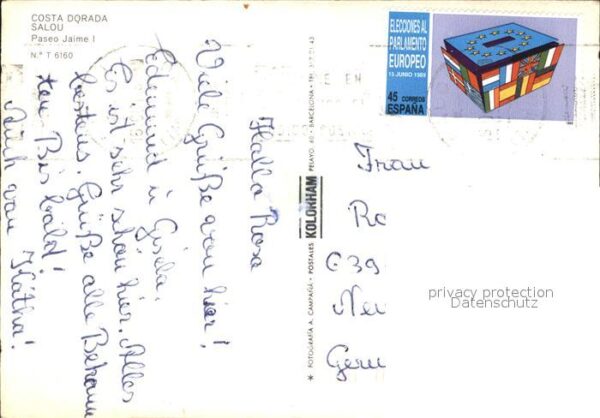 COSTA DORADA
SALOU
Paseo Jaime I
N.º T 6160
Hallo Rosa
Viele Grüße von hier!
Edmund u Gisela.
Es ist sehr schön hier. Alles
bestens. Grüße alle Bekann
ten Bis bald!
Auch von Kätha!
* FOTOGRAFIA A. CAMPAÑA - POSTALES KOLORHAM PELAYO, 40 - BARCELONA - TEL. 317 01 43
ELECCIONES AL
PARLAMENTO
EUROPEO
15 JUNIO 1989
45 CORREOS
ESPAÑA
Frau
Ro
639
Neu
Germ
privacy protection
Datenschutz